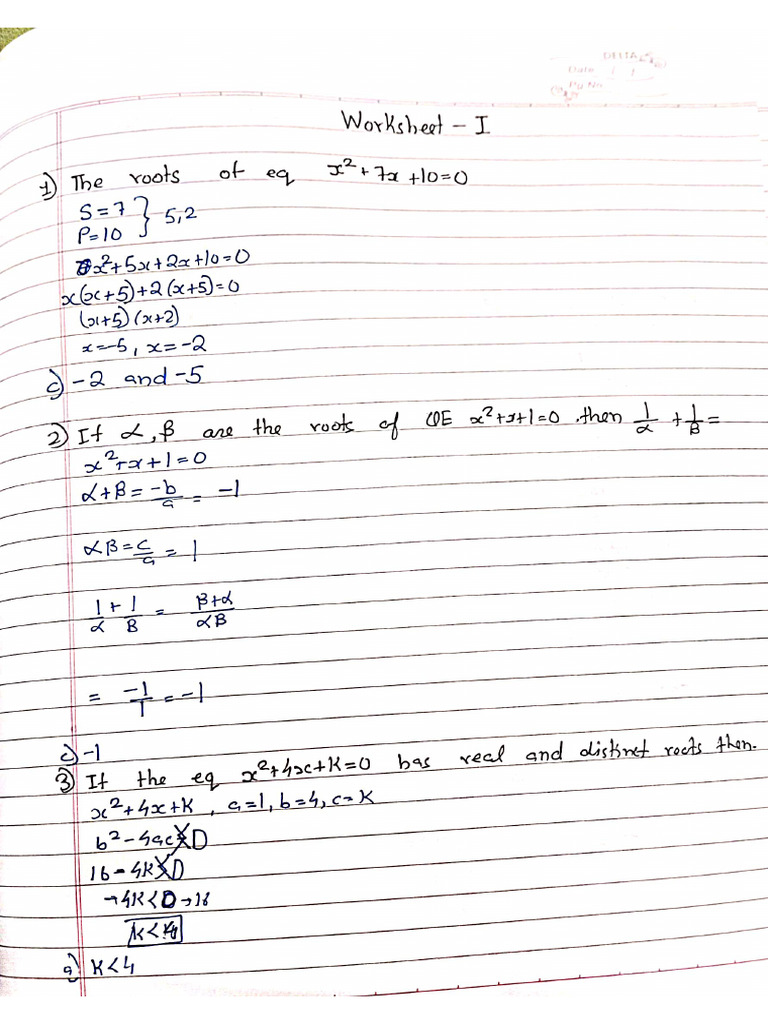 DELTA
Date
Pg No
Worksheet - I
1) The roots of eq x²+7x+10=0
S=7
P=10 } 5,2
x²+5x+2x+10=0
x(x+5)+2(x+5)=0
(x+5)(x+2)
x=-5, x=-2
c) -2 and -5
2) If α,β are the roots of QE x²+x+1=0 .then 1/α + 1/β =
x²+x+1=0
α+β = -b/a = -1
αβ = c/a = 1
1/α + 1/β = β+α/αβ
= -1/1 = -1
c) -1
3) If the eq x²+4x+K=0 has real and distinct roots then.
x²+4x+K, a=1, b=4, c=K
b²-4ac D
16-4K D
-4K<0-16
K<4
a) K<4